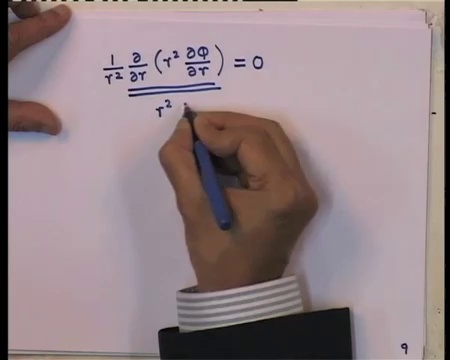 1/r² ∂/∂r (r² ∂Φ/∂r) = 0
r²
9